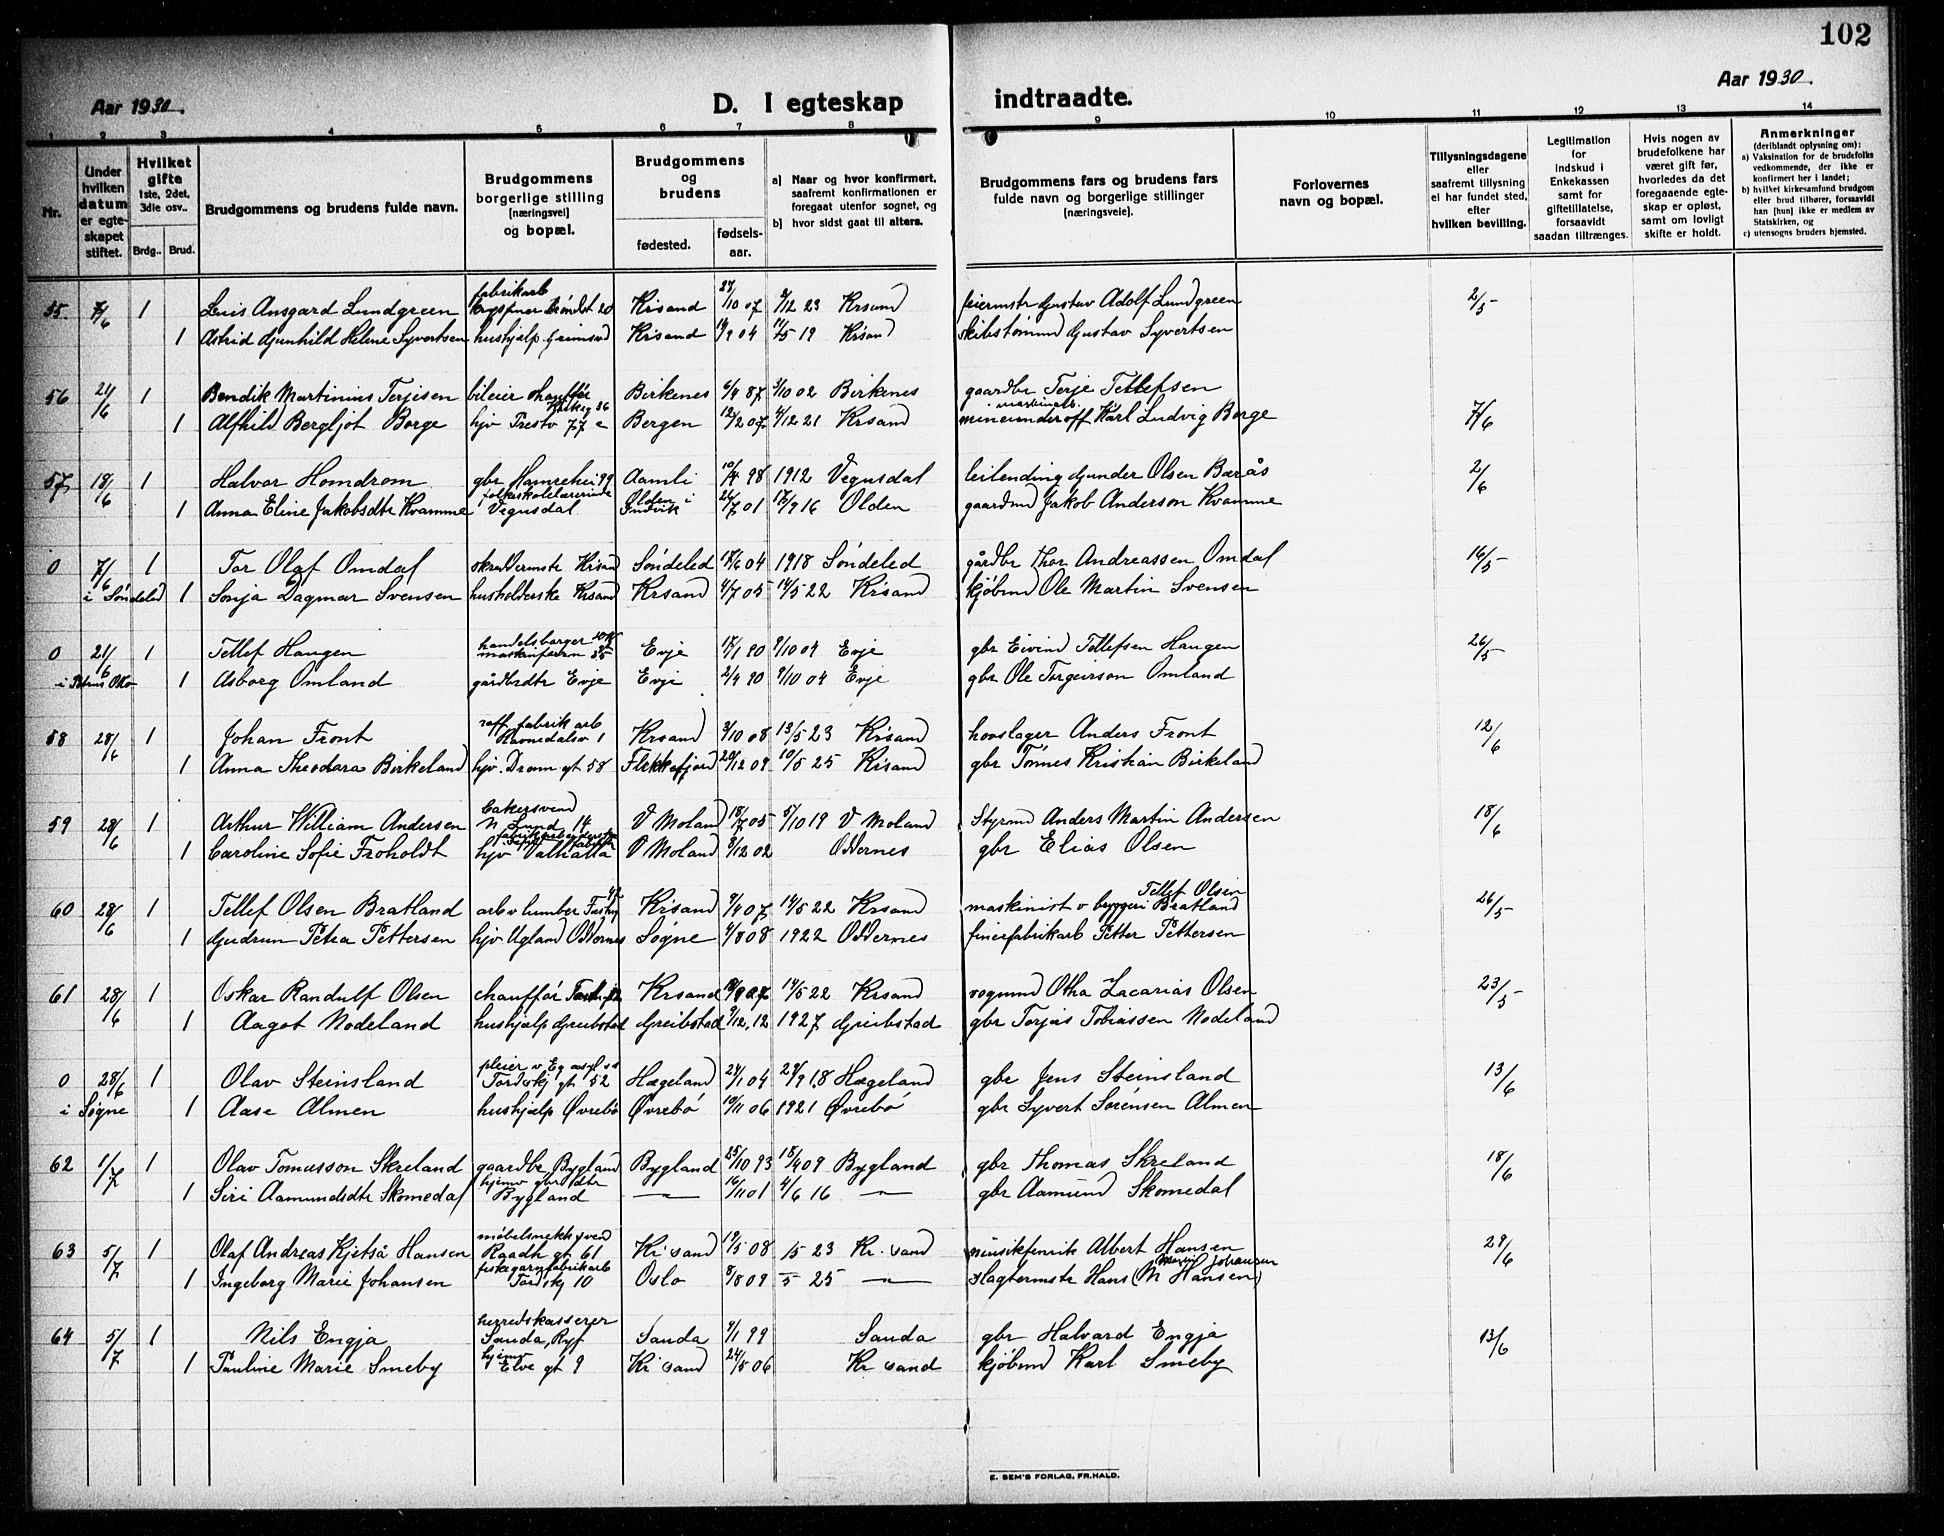 102
Aar 1930.
D. I egteskap indtraadte.
Aar 1930.
1 2 3 4 5 6 7 8 9 10 11 12 13 14
Nr.
Under hvilken datum er egteskapet stiftet.
Hvilket gifte 1ste, 2det, 3die osv..
Brdg.. Brud.
Brudgommens og brudens fulde navn.
Brudgommens borgerlige stilling (næringsvei) og bopæl.
Brudgommens og brudens
fødested. fødselsaar.
a) Naar og hvor konfirmert, saafremt konfirmationen er foregaat utenfor sognet, og
b) hvor sidst gaat til alters.
Brudgommens fars og brudens fars fulde navn og borgerlige stillinger (næringsveie).
Forlovernes navn og bopæl.
Tillysningsdagene eller saafremt tillysning ei har fundet sted, efter hvilken bevilling.
Legitimation for indskud i Enkekassen samt for giftetillatelse, forsaavidt saadan tiltrænges.
Hvis nogen av brudefolkene har været gift før, hvorledes da det foregaaende egteskap er opløst, samt om lovligt skifte er holdt.
Anmerkninger (deriblandt oplysning om):
a) Vaksination for de brudefolks vedkommende, der ikke er konfirmert her i landet;
b) hvilket kirkesamfund brudgom eller brud tilhører, forsaavidt han [hun] ikke er medlem av Statskirken, og
c) utensogns bruders hjemsted.
55 7/6 1 Luis Ansgard Lundgreen fabrikarb Krsand 27/10 07 2/12 23 Krsand feiermstr Gustav Adolf Lundgreen 2/5
1 Astrid Gunhild Helene Syvertsen hushjelp Grimsvd Krsand 19/9 04 4/5 19 Krsand skibstømmd Gustav Syvertsen
56 21/6 1 Bendik Martinius Terjesen bileier chauffør Birkenes 6/4 87 3/10 02 Birkenes gaardbr Terje Tellefsen
1 Alfhild Bergljot Borge hjv Trestv 77 c Bergen 12/2 07 4/12 21 Krsand mineunderoff Karl Ludvig Borge 7/6
57 18/6 1 Halvor Homdrom gbr Hamrehei 99 Aamli 10/4 98 1912 Vegusdal leilending Gunder Olsen Barås 2/6
1 Anna Eline Jakobsdtr Kvamme folkeskolelærerinde Vegusdal Olden i Indvik 24/7 01 17/9 16 Olden gaardmd Jakob Anderson Kvamme
0 7/6 1 Tor Olaf Omdal skreddermstr Krsand Søndeled 18/6 04 1918 Søndeled gårdbr Thor Andreassen Omdal 16/5
i Søndeled 1 Sonja Dagmar Svensen husholderske Krsand Krsand 4/7 05 14/5 22 Krsand kjøbmd Ole Martin Svensen
0 21/6 1 Tellef Haugen handelsborger Evje 18/1 80 9/10 04 Evje gbr Eivind Tellefsen Haugen 26/5
1 Asborg Omland gårdbrdtr Evje Evje 2/4 90 9/10 04 Evje gbr Ole Torgeirson Omland
58 28/6 1 Johan Front raff fabrik arb Ravnedalsv 1 Krsand 3/10 08 13/5 23 Krsand hovslager Anders Front 12/6
1 Anna Theodora Birkeland hjv. Dronn gt 58 Flekkefjord 20/12 09 10/5 25 Krsand gbr Tønnes Kristian Birkeland
59 28/6 1 Arthur William Andersen bakersvend N Lund 14 V Moland 18/7 05 5/10 19 V Moland Styrmd Anders Martin Andersen 18/6
1 Caroline Sofie Froholdt hjv Valhalla V Moland 8/12 02 Oddernes gbr Elias Olsen
60 28/6 1 Tellef Olsen Bratland arb v lumber Krsand 9/4 07 14/5 22 Krsand maskinist v bryggeri Tellef Olsen Bratland 26/5
1 Gudrun Petra Pettersen hjv. Ugland Oddernes Søgne 4/8 08 1922 Oddernes finerfabrikarb Petter Pettersen
61 28/6 1 Oskar Randulf Olsen chauffør Krsand 18/9 07 14/5 22 Krsand vognmd Otha Zacarias Olsen 23/5
1 Aagot Nodeland hushjælp Greibstad Greibstad 9/12 12 1927 Greibstad gbr Terjus Tobiassen Nodeland
0 28/6 1 Olav Steinsland pleier v Eg asyl Tordskj gt 52 Hægeland 24/1 04 29/9 18 Hægeland gbr Jens Steinsland 13/6
i Søgne 1 Aase Almen hushjælp Øvrebø Øvrebø 19/11 06 1921 Øvrebø gbr Syvert Sørensen Almen
62 1/7 1 Olav Tomasson Skreland gaardbr Bygland Bygland 25/10 93 18/4 09 Bygland gbr Thomas Skreland 18/6
1 Siri Aamundsdtr Skomedal hjemv gbr dtr Bygland — 16/11 01 4/6 16 — gbr Aamund Skomedal
63 5/7 1 Olaf Andreas Kjetså Hansen møbelsnekksvend Raadh gt 61 Kr sand 19/5 08 /5 23 Kr. sand musikfenrik Albert Hansen 29/6
1 Ingeborg Marie Johansen fiskegarnfabrikarb Tordskj 10 Oslo 8/8 09 5 25 — slagtermstr Hans (M Hansen) Johansen
64 5/7 1 Nils Engja herredskasserer Sauda, Ryf Sauda 4/1 99 Sauda gbr Halvard Engja 13/6
1 Pauline Marie Smeby hjemv Elve gt 9 Kr sand 24/5 06 Kr sand kjøbmd Karl Smeby
E. SEM'S FORLAG, FR.HALD.